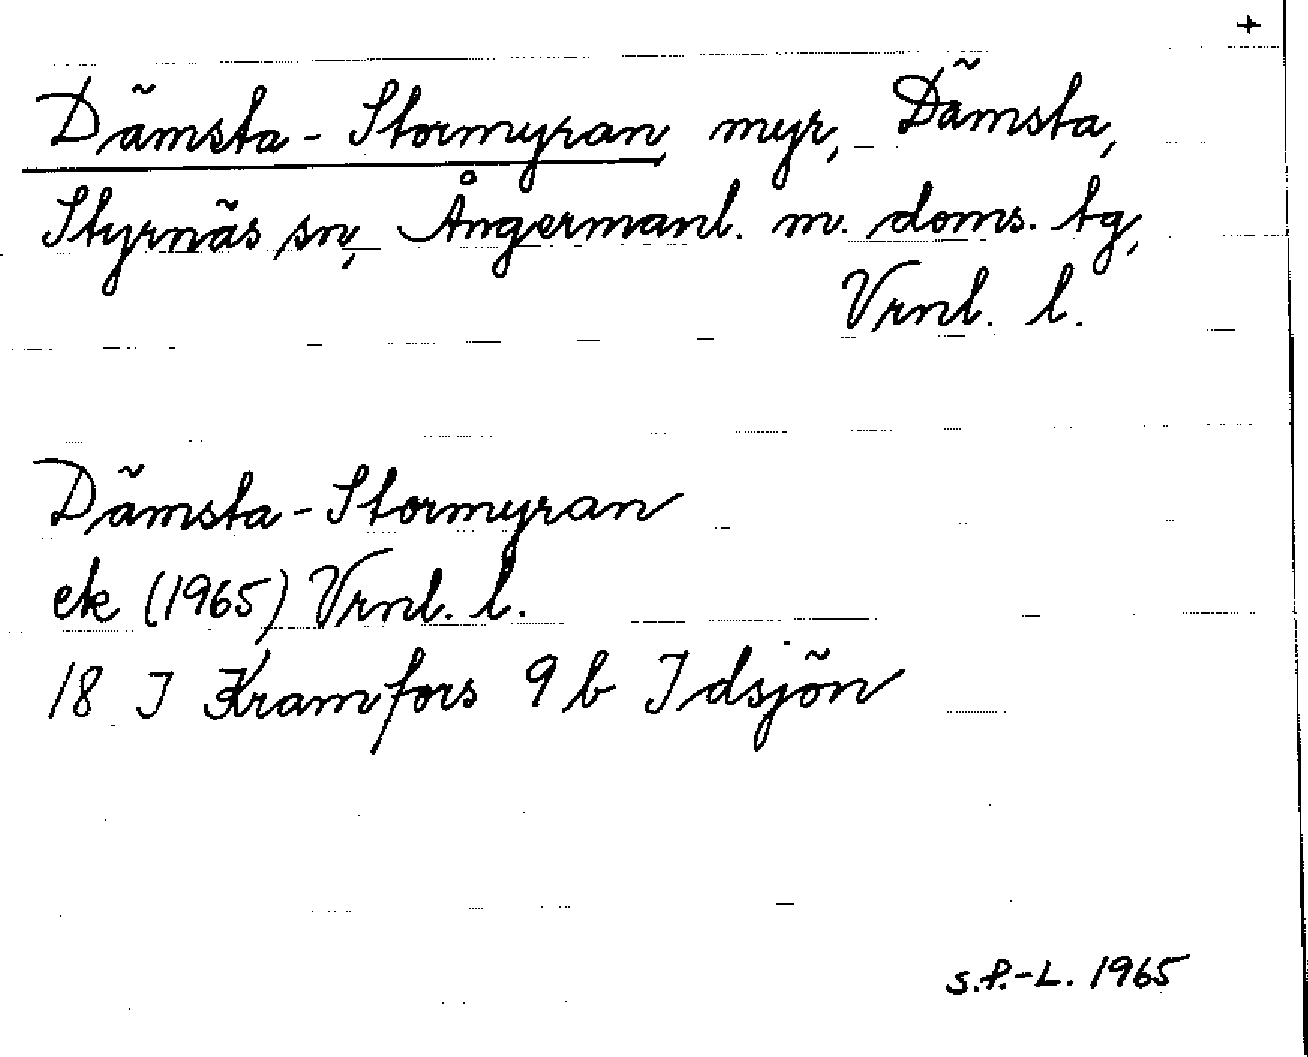 +
Dämsta-Stormyran, myr, Dämsta,
Styrnäs sn, Ångermanl. m. doms. tg,
Vrnl. l.
Dämsta-Stormyran
ek (1965) Vrnl. l.
18 I Kramfors 9 b Idsjön
S.P.-L. 1965